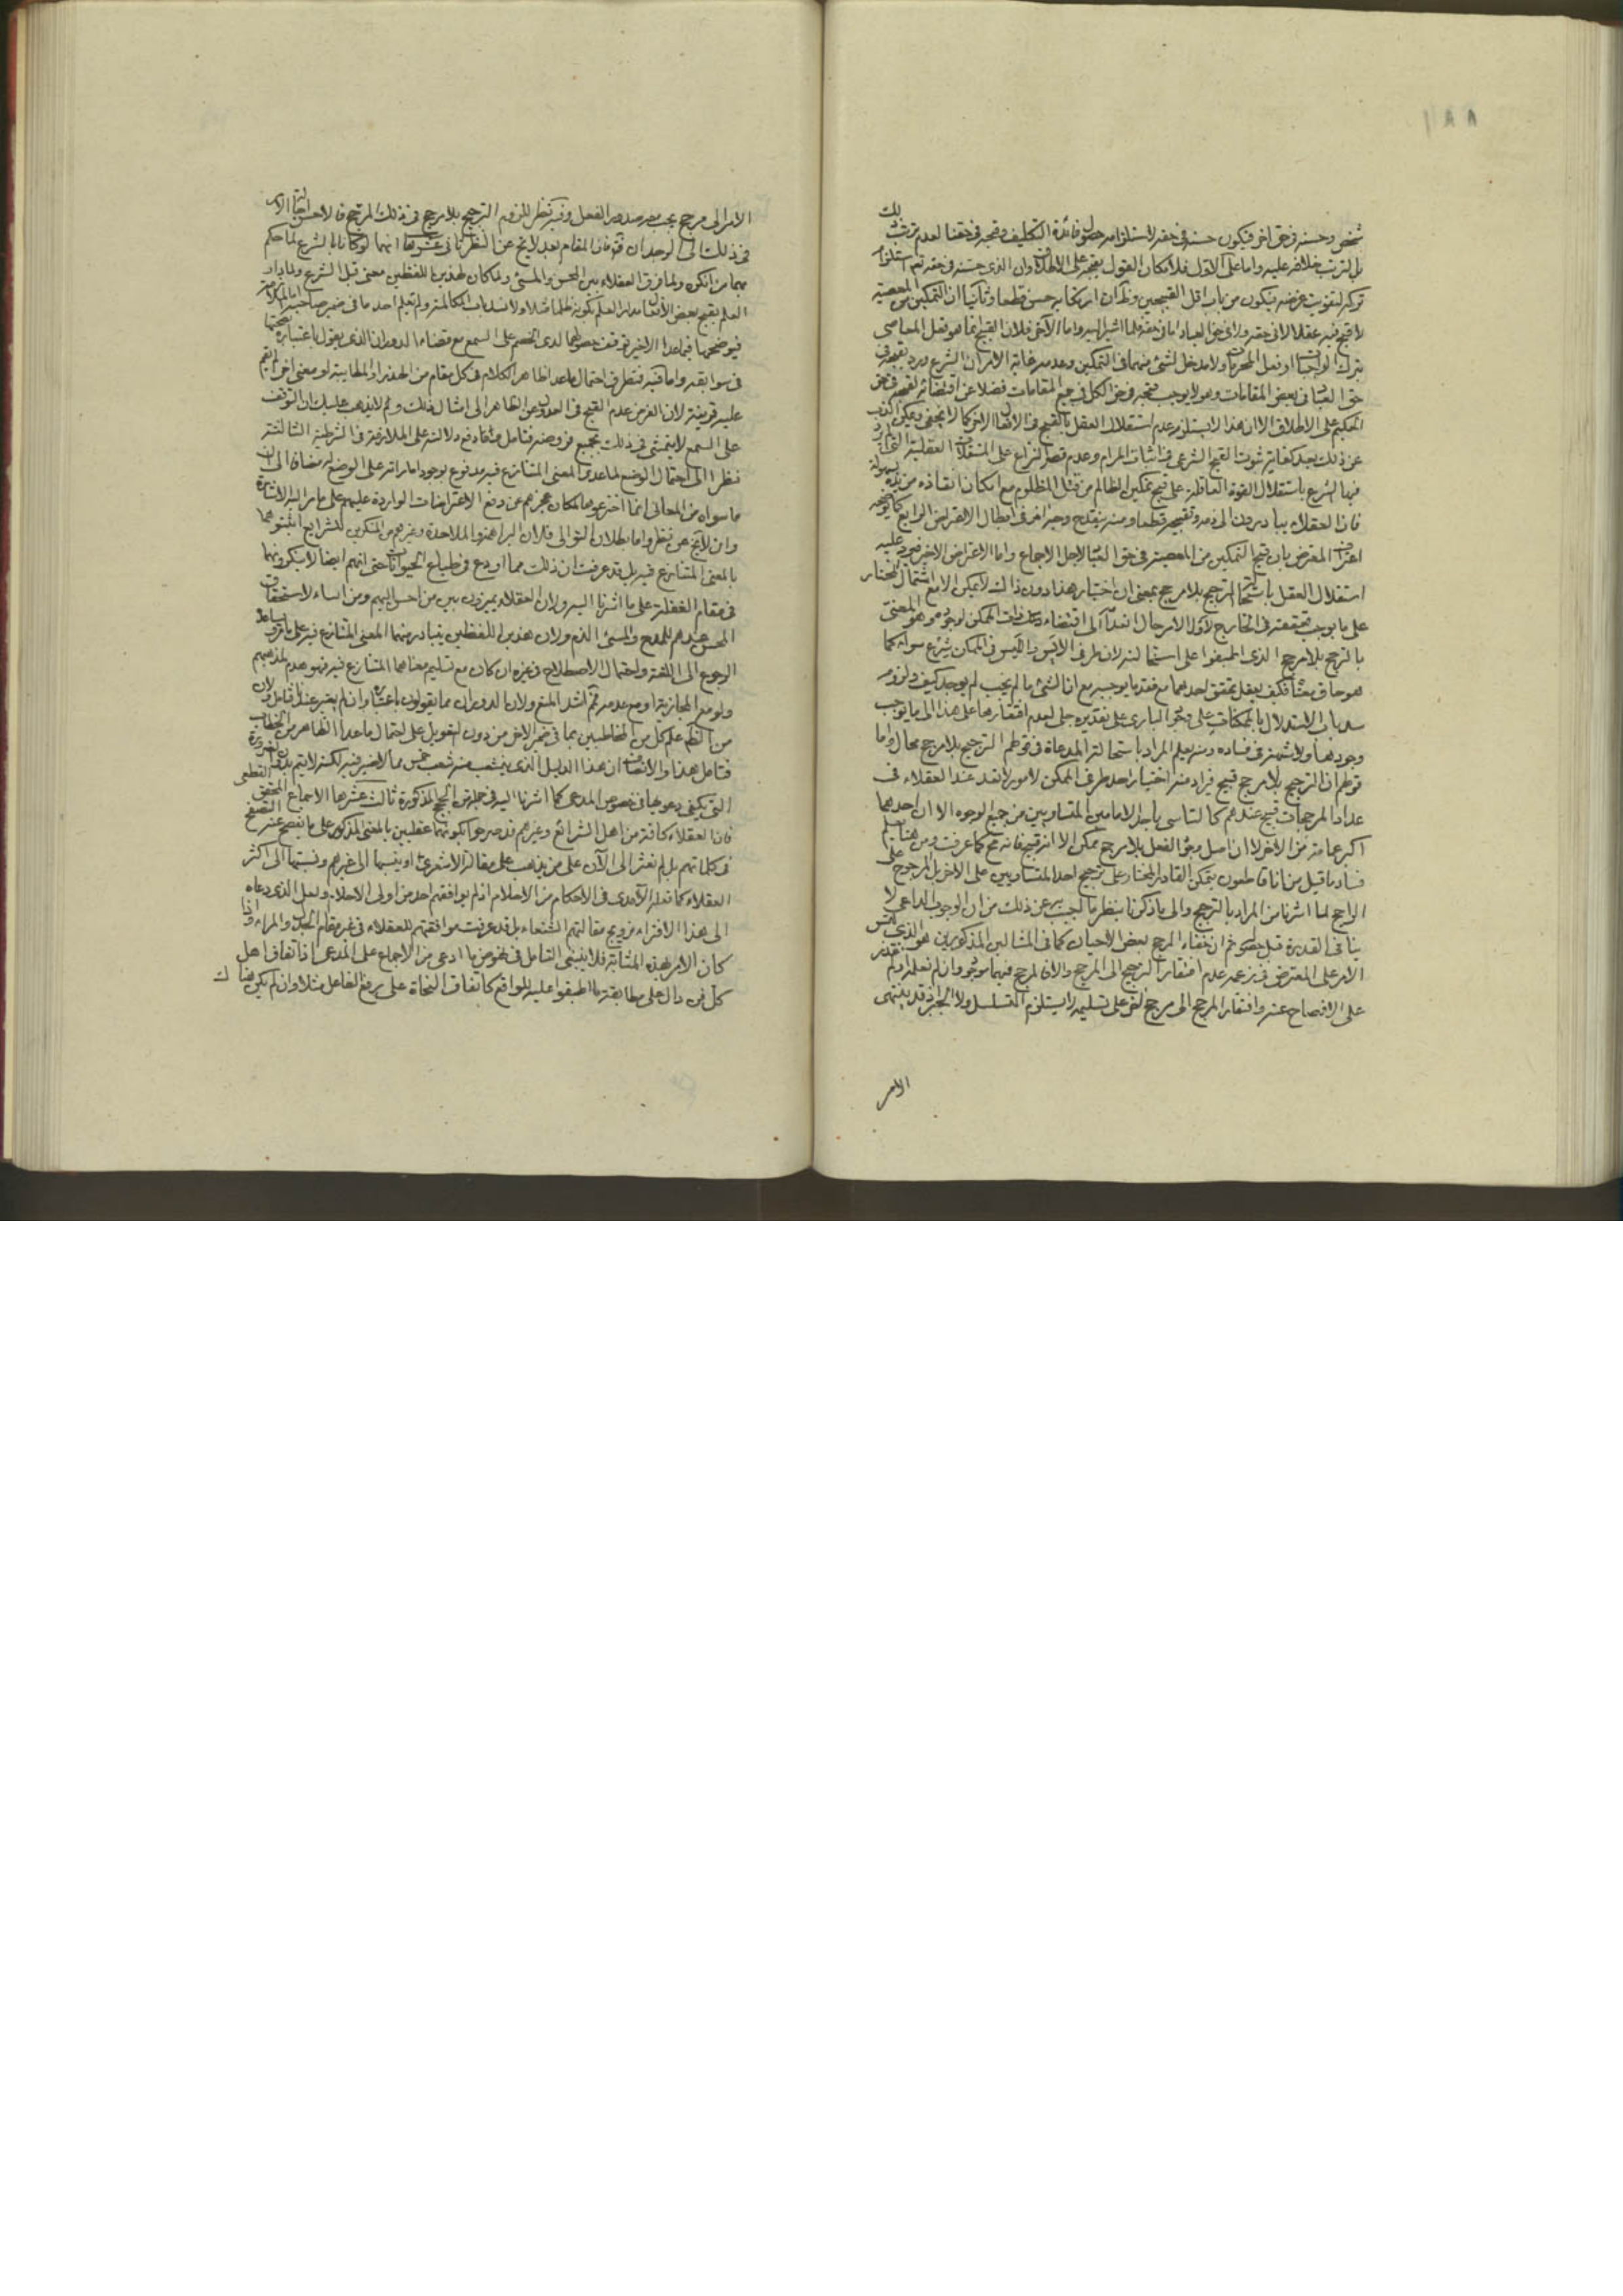 ١٨٨
شخص وحسنه في حق اخر فيكون حسنه في حقه لاستلزامه حصول فائدة التكليف وقبحه في حقنا لعدم ترتب ذلك
بل لترتب خلافه عليه واما على الاول فلامكان القول بقبحه على الاطلاق وان الذي حسنه في حقه تع استلزام
تركه لتفويت غرضه فيكون من باب اقل القبيحين ولا ان ارتكابه حسن قطعا وثانيا ان التمكين من المعصية
لا قبح فيه عقلا لا في حقه ولا في حق العباد اما في حقه فلما اشير اليه واما الآخر فلان القبيح انما هو فعل المعاصي
بترك الواجبات او فعل المحرمات ولا مدخل لشئ منهما في التمكين وعدمه غاية الامر ان الشرع ورد بقبحه في
حق العباد في بعض المقامات وهو لا يوجب قبحه في حق الكل في جميع المقامات فضلا عن اقتضائه لقبحه في حق
الحكيم على الاطلاق الا ان هذا لا يستلزم عدم استقلال العقل بالقبح في الافعال الاخر كما لا يخفى ويمكن الذب
عن ذلك بعد كفاية ثبوت القبح الشرعي في اثبات المرام وعدم قصر النزاع على المستقلات العقلية التي لم يرد
فيها الشرع باستقلال القوة العاقلة على قبح تمكين الظالم من قتل المظلوم مع امكان انقاذه من يده بسهولة
فان العقلاء يبادرون الى ذمه وتقبيحه قطعا ومنه ينقدح وجه اخر في ابطال الاعتراض الرابع كما يوجبه
اعتراف المعترض بان قبح التمكين من المعصية في حق العباد لاجل الاجماع واما الاعتراض الاخير فيرد عليه
استقلال العقل باستحالة الترجيح بلا مرجح بمعنى ان اختيار هذا دون ذاك لا يمكن الا مع اشتمال المختار
على ما يوجب تحققه في الخارج لاول الامر حال
بالترجيح بلا مرجح الذي اطبقوا على استحالته لان طرفي الايس والليس في الممكن شرع سواء كما
هو حاق معناه فكيف يعقل تحقق احدهما مع فقد ما يوجبه مع ان الشئ ما لم يجب لم يوجد كيف ولزوم
سد باب الاستدلال بالممكنات على وجود الباري على تقديره جلي لعدم افتقارها على هذا الى ما يوجب
وجودها ولا شبهة في فساده ومنه يعلم المراد باستحالة المدعاة في قولهم الترجيح بلا مرجح محال واما
قولهم ان الترجيح بلا مرجح قبيح فيراد منه اختيار احد طرفي الممكن لامور لا تعد عند العقلاء في
عداد المرجحات قبيح عندهم كالتاسي باحد الامامين المتساويين من جميع الوجوه الا ان احدهما
اكبر عمامة من الاخر لا ان اصل صدور الفعل بلا مرجح ممكن الا انه قبيح فانه محال كما عرفت ومن هنا يعلم
فساد ما قيل من انا قاطعون بتمكن القادر المختار على ترجيح احد المتساويين على الاخر بل المرجوح على
الراجح لما اشرنا من المراد بالترجيح والى ما ذكرنا ينظر ما اجيب به عن ذلك من ان الوجوب الداعي لا
ينافي القدرة قبل حصوله ثم ان خفاء المرجح بعض الاحيان كما في المثالين المذكورين هو الذي لبس
الامر على المعترض في زعمه عدم افتقار الترجيح الى المرجح والا فالمرجح فيهما موجود وان لم نعلمه او لم نقدر
على الافصاح عنه وافتقار المرجح الى مرجح اخر على تسليمه لا يستلزم التسلسل ولا الجبر اذ قد ينتهي
الامر
الامر الى مرجح يجب معه صدور الفعل وفيه نظر للزوم الترجيح بلا مرجح في ذلك المرجح
في ذلك الى الوجدان فان المقام بعد لا يخ عن النظر ثاني عشرها انهما لو كانا بالشرع لما حكم
بهما من انكره ولما فرق العقلاء بين المحسن والمسئ ولما كان لهذين اللفظين معنى قبل الشرع ولما دار
العلم بقبح بعض الافعال مدار العلم بكونه ظلما مثلا ولانسد باب المكالمة ولم يعلم احد ما في ضمير صاحبه
فيوضحها فيما عدا الاخير توقف حصولها لدى الخصم على السمع مع قضاء الدوران الذي يعول باعتباره بصحتها
في سوابقه واما فيه فتطرق احتمال ما عدا ظاهر الكلام في كل مقام من الهذر او المطايبة او معنى اخر لم يقم
عليه قرينة لان الفرض عدم القبح في العدول عن الظاهر الى امثال ذلك ولا يذهب عليك ان التوقف
على السمع لا يتمشى في ذلك بجميع فروضه فتامل
نظرا الى احتمال الوضع لما عدا المعنى المتنازع فيه مدفوع بوجود اماراته على الوضع له مضافا الى ان
ما سواه من المعاني انما اخترعوها لمكان عجزهم عن دفع الاعتراضات الواردة عليهم على ما مر اليه الاشارة
وان لا يخ عن نظر واما بطلان التوالي فلان البراهمة والملاحدة وغيرهم من المنكرين للشرايع اثبتوهما
بالمعنى المتنازع فيه بل قد عرفت ان ذلك مما اودع في طباع الحيوانات حتى انهم ايضا لا ينكرونهما
في مقام الغفلة على ما اشرنا اليه ولان العقلاء يميزون بين من احسن اليهم ومن اساء لاستحقاق
المحسن عندهم للمدح والمسئ الذم ولان هذين اللفظين يتبادر منهما المعنى المتنازع فيه على ما يساعد
الرجوع الى اللغة واحتمال الاصطلاح في غيره ان كان مع تسليم معناهما المتنازع فيه فهو هدم لمذهبهم
ولو مع المجازية او مع عدمه ثم اشد المنع ولان الدوران مما يقولون باعتباره وان لم يعتبر عندنا فتامل ولان
من الظاهر علم كل من المخاطبين بما في ضمير الاخر من دون التعويل على احتمال ما عدا الظاهر من الخطاب
فتامل هذا والانصاف ان هذا الدليل الذي ينشعب منه شعب خمس مما لا خير فيه لكنه لا يتم بدون الضرورة
التي يكفي دعويها في خصوص المدعى كما اشرنا اليه في جل من الحجج المذكورة ثالث عشرها الاجماع المحقق القطعي
فان العقلاء كافة من اهل الشرائع وغيرهم قد صرحوا بكونهما عقليين بالمعنى المذكور على ما يفصح عنه التصفح
في كلماتهم بل لم نعثر الى الآن على من يذهب على مقالة الاشعري او ينسبها الى غيرهم ونسبتها الى اكثر
العقلاء كما فعله الآمدي في الاحكام من الاحلام اذ لم يوافقهم احد من اولى الاحلام ولعل الذي دعاه
الى هذا الافتراء ترويج مقالتهم الشنعاء بل قد عرفت موافقتهم للعقلاء في غير مقام الجدل والمراء واذا
كان الامر بهذه المثابة فلا ينبغي التامل في نحو من ادعى من الاجماع على المدعى اذ اتفاق اهل
كل فن دال على مطابقة ما اطبقوا عليه للواقع كاتفاق النحاة على رفع الفاعل مثلا وان لم يكن هناك